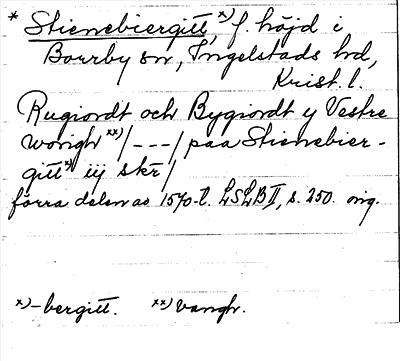 * Stienebiergitt, x) f. höjd i
Borrby sn, Ingelstads hd,
Krist. l.
Rugiordt och Bygiordt y Vestre
wongh xx) /---/ paa Stienebier-
gitt x) iij skr/
förra delen av 1570-t. LSLB II, s. 250. orig.
x) -bergitt. xx) vangh.